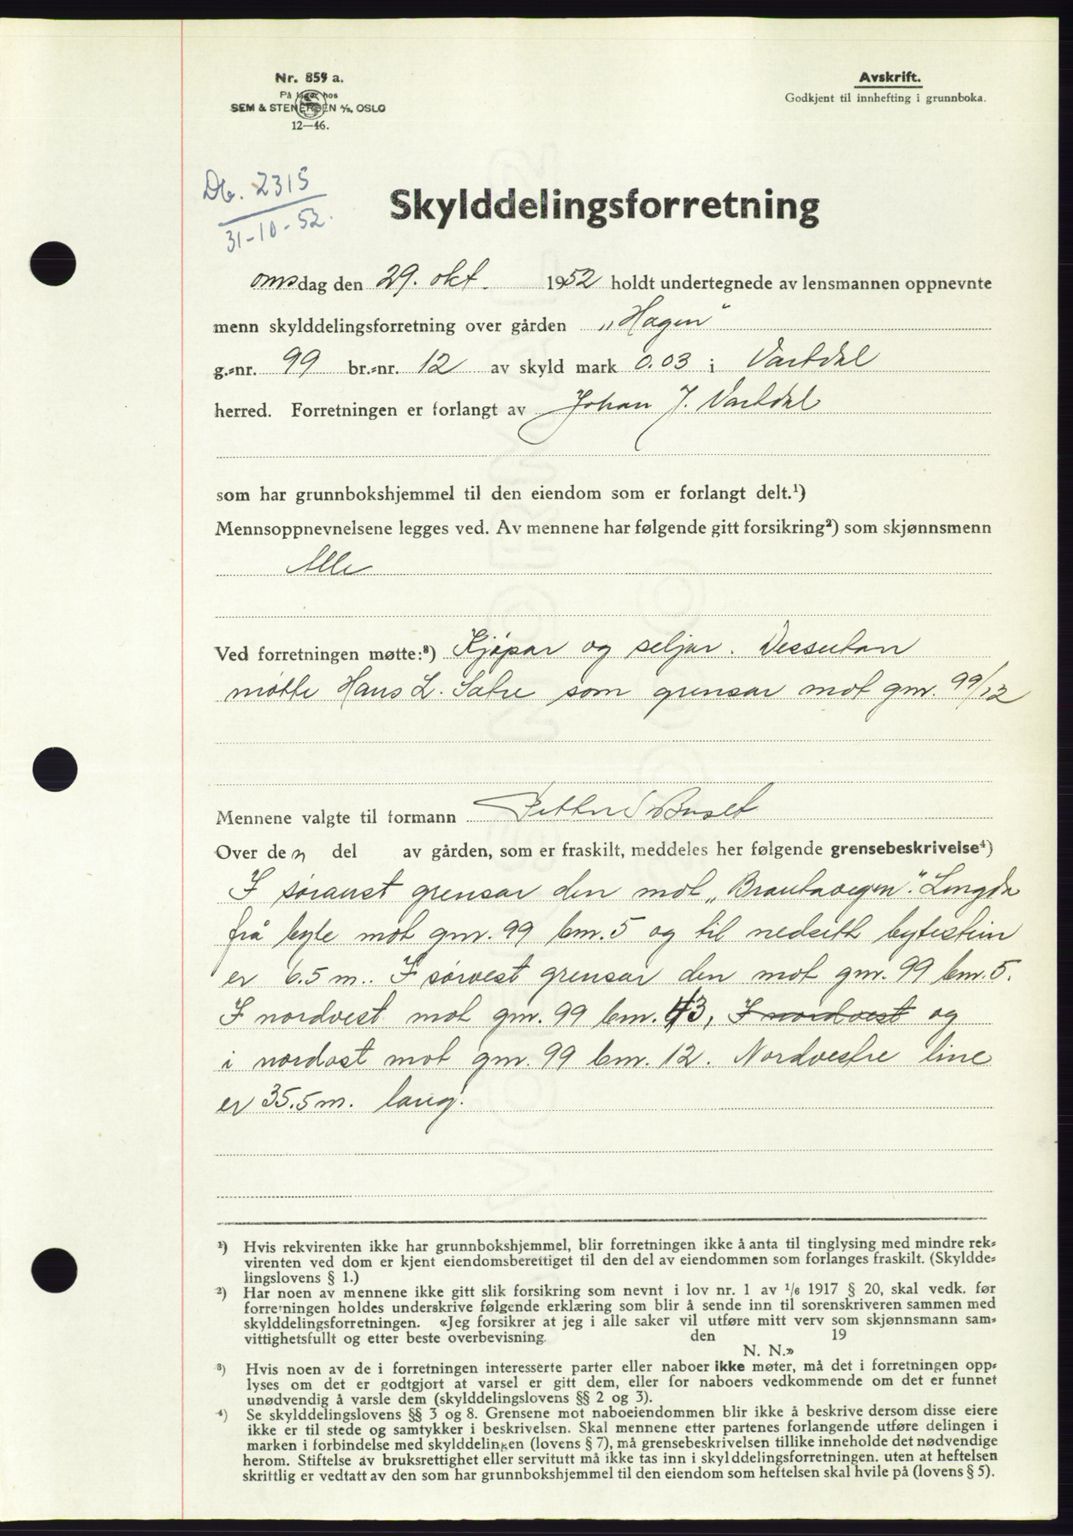 Nr. 859 a.
På lager hos
SEM & STENERSEN A/S, OSLO
12—46.
Avskrift.
Godkjent til innhefting i grunnboka.
Db. 2315
31-10-52.
Skylddelingsforretning
onsdag den 29. okt. 1952 holdt undertegnede av lensmannen oppnevnte
menn skylddelingsforretning over gården „Hagen“
g.=nr. 99 br.=nr. 12 av skyld mark 0.03 i Vartdal
herred. Forretningen er forlangt av Johan J. Vartdal
som har grunnbokshjemmel til den eiendom som er forlangt delt.¹)
Mennsoppnevnelsene legges ved. Av mennene har følgende gitt forsikring²) som skjønnsmenn
Alle
Ved forretningen møtte:³) Kjøpar og seljar. Dessutan
møtte Hans L. Sætre som grensar mot gnr. 99/12
Mennene valgte til formann Petter S
Over den del av gården, som er fraskilt, meddeles her følgende grensebeskrivelse⁴)
I søraust grensar den mot „Brautavegen“. Lengda
frå byte mot gnr. 99 bnr. 5 og til nedsett bytestein
er 6.5 m.. I sørvest grensar den mot gnr. 99 bnr. 5.
I nordvest mot gnr. 99 bnr. 43, I nordvest og
i nordost mot gnr. 99 bnr. 12. Nordvestre line
er 35.5 m. lang.
¹) Hvis rekvirenten ikke har grunnbokshjemmel, blir forretningen ikke å anta til tinglysing med mindre rek=
virenten ved dom er kjent eiendomsberettiget til den del av eiendommen som forlanges fraskilt. (Skyldde=
lingslovens § 1.)
²) Har noen av mennene ikke gitt slik forsikring som nevnt i lov nr. 1 av 1/6 1917 § 20, skal vedk. før
forretningen holdes underskrive følgende erklæring som blir å sende inn til sorenskriveren sammen med
skylddelingsforretningen. «Jeg forsikrer at jeg i alle saker vil utføre mitt verv som skjønnsmann sam=
vittighetsfullt og etter beste overbevisning. den 19
N. N.»
³) Hvis noen av de i forretningen interesserte parter eller naboer ikke møter, må det i forretningen opp=
lyses om det er godtgjort at varsel er gitt dem, eller for naboers vedkommende om det er funnet
unødvendig å varsle dem (skylddelingslovens §§ 2 og 3).
⁴) Se skylddelingslovens §§ 3 og 8. Grensene mot naboeiendommen blir ikke å beskrive dersom disse eiere
ikke er til stede og samtykker i beskrivelsen. Skal mennene etter partenes forlangende utføre delingen i
marken i forbindelse med skylddelingen (lovens § 7), må grensebeskrivelsen tillike inneholde det nødvendige
herom. Stiftelse av bruksrettighet eller servitutt må ikke tas inn i skylddelingsforretningen. uten at heftelsen
skriftlig er vedtatt av den som har grunnbokshjemmel til den eiendom som heftelsen skal hvile på (lovens § 5).